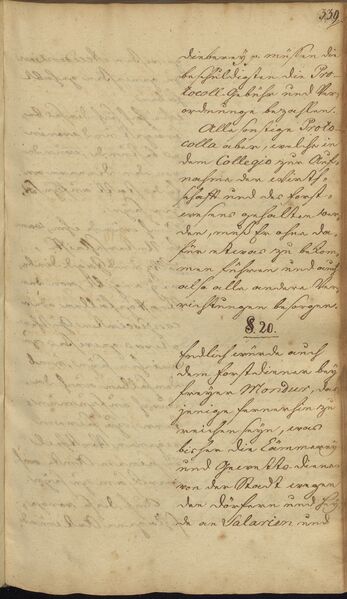 339
dieberey p. müssen die
beschuldigsten die Pro-
tocoll-Gebühr und Ver-
ordnunge bezahlen.
Alle sonstige Proto-
colla aber, welche in
dem Collegio zur Auf-
nahme der Wirth-
schafft und des Forst-
wesens gehalten wer-
den, muß Er ohne da-
für etwas zu bekom-
men führen und auch
also alle andere Ver-
richtungen besorgen.
§. 20.
Endlich würde auch
dem Forstdiener bey
freyer Mondur, das
jenige fernerhin zu
reichen seyn, was
bisher die Cämmerey
und Gewetts diener
von der Stadt wegen
den Dörfern und Hey
de an Salarien und